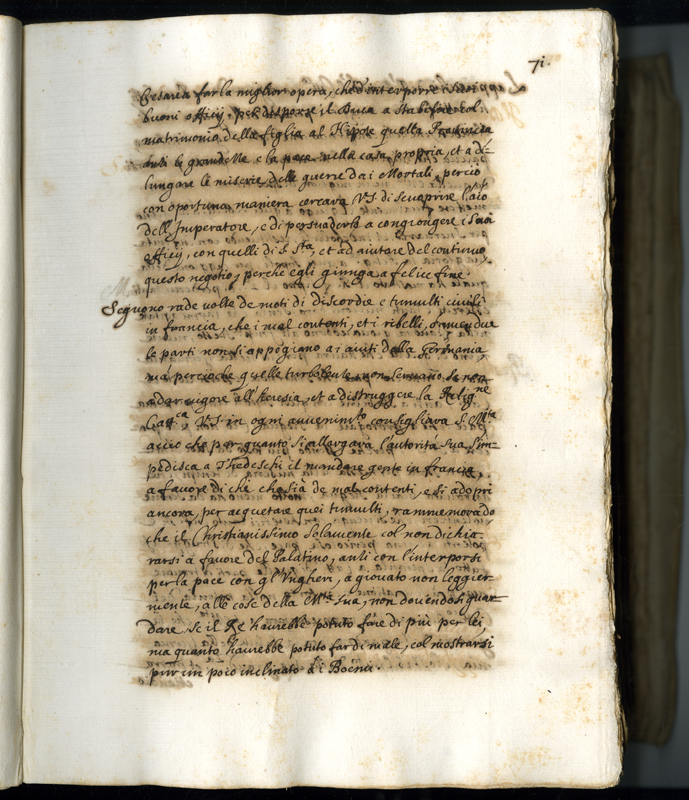 71.
Cesarea far la miglior opera, che d'interporre i suoi
buoni officij, per disporre il Duca a stabilire col
matrimonio della figlia al Nipote quella Provincia
anzi le grandezze e la pace nella casa propria, et a di=
lungare le miserie delle guerre da i Mortali, perciò
con oportuna maniera cercava V.S. di scuoprire l'aio
dell'Imperatore, e di persuaderlo a congiongere i suoi
officij, con quelli di S. Sta, et ad aiutare del continuo
questo negotio, perche egli giunga a felice fine.
Seguono rade volte de moti di discordie e tumulti civili
in francia, che i mal contenti, et i ribelli, d'amendue
le parti non si appogiano a i aiuti della Germania,
ma percioche quelle turbolente non servano se non
a dar vigore all'heresia, et a distruggere la Religne
Catca, V.S. in ogni avvenimto consigliava S. Mta
acciò che per quanto si allargava l'autorita sua, im=
pedisca a Thedeschi il mandare gente in francia,
a favore di chi che sia de mal contenti, e si adopri
ancora, per acquetare quei tumulti, rammemorado
che il Christianissimo solamente col non dichia
rarsi a favore del Palatino, anzi con l'interporsi
per la pace con gl'Ungheri, à giovato non leggier=
mente, alle cose della Mta sua, non dovendosi guar=
dare se il Re haurebbe potuto fare di più per lei,
ma quanto haurebbe potuto far di male, col mostrarsi
pur un poco inclinato à i Boemi.